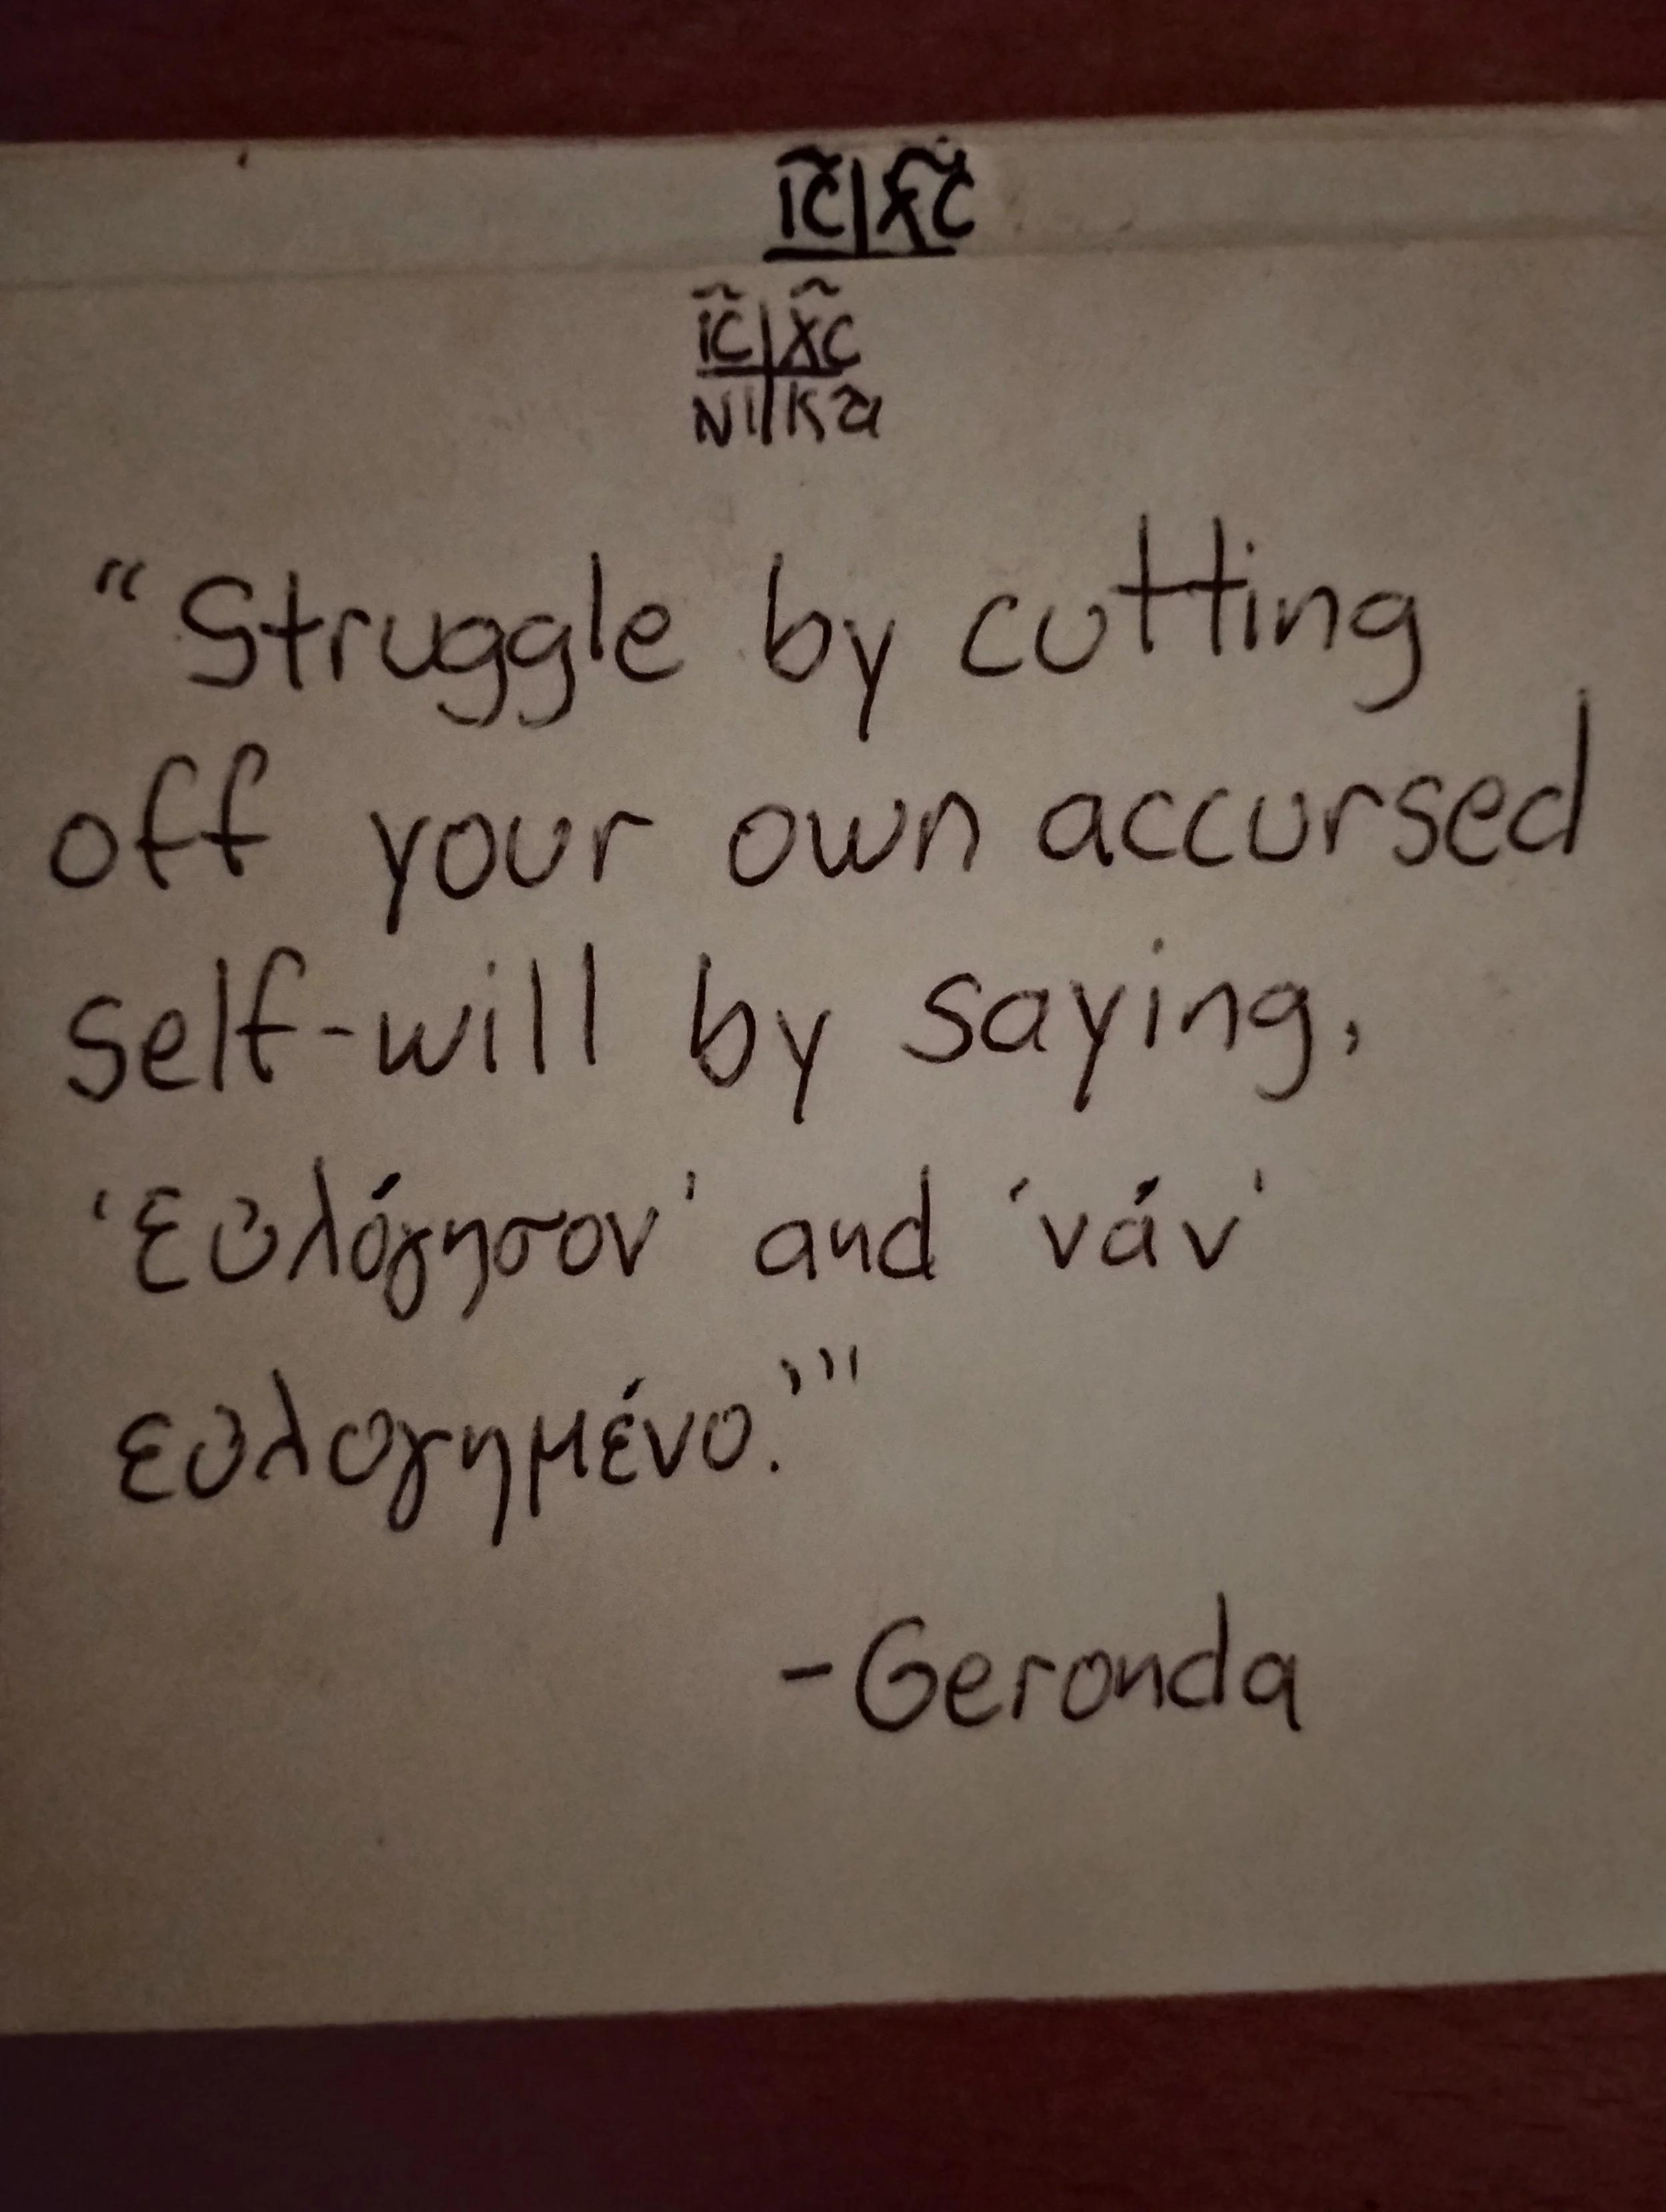 IC|XC
IC|XC
NI|Ka
“Struggle by cutting
off your own accursed
self-will by saying,
‘ευλόγησον’ and ‘νάν’
ευλογημένο.’”
-Geronda